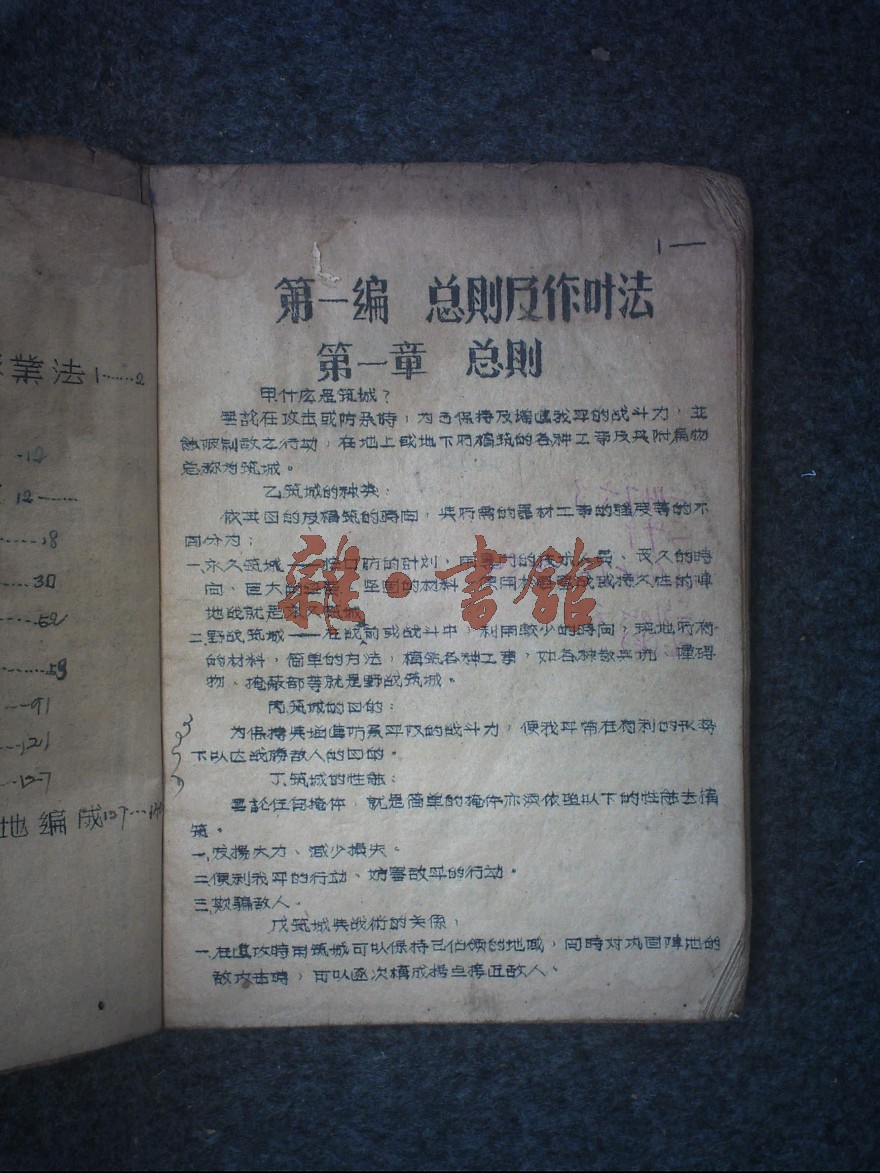 業法1……2
-12
12------
18
30
52
59
91
121
127
地编成127
1—
第一编 总則及作叶法
第一章 总則
甲什庅是筑城？
無論在攻击或防禦時，为了保持及增進我军的战斗力，並
敌之行动，在地上或地下所構筑的各种工事及其附属物
总称为筑城。
乙筑城的种类：
依其目的及構筑的時间，與所需的器材工事的強度等的不
同分为：
一、永久筑城——按口防的計划，用專门的技术人员、長久的時
间、巨大的 坚固的材料 战或持久性的陣
地战就是永久筑城
二、野战筑城——在战前或战斗中，利用較少的時间，現地所有
的材料，简单的方法，構筑各种工事，如各种散兵坑 障碍
物、掩蔽部等就是野战筑城。
丙筑城的目的：
为保持與增進防禦军队的战斗力，使我军常在有利的形势
下以达战勝敌人的目的。
丁筑城的性能：
無論任何掩体，就是简单的掩体亦須依照以下的性能去構
筑。
一、发揚火力、减少損失。
二、便利我军的行动、妨害敌军的行动。
三、欺骗敌人。
戊筑城與战術的关係：
一、在進攻時用筑城可以保持已佔领的地域，同時对巩固陣地的
敌攻击時，可以逐次構成据点接近敌人、
雜·書館